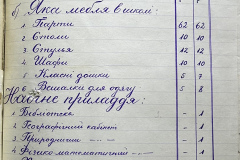 б) Яка мебля в школі:
1. Парти 62 62
2. Столи 10 10
3. Стулья 12 12
4. Шафи 10 10
5. Класні дошки 5 7
6. Вешалки для одягу 5 8
Наочне приладдя:
1. Бібліотека - 1
2. Географічний кабінет - 1
3. Природничий — " — - 1
4. Фізико математичний — " — - 1